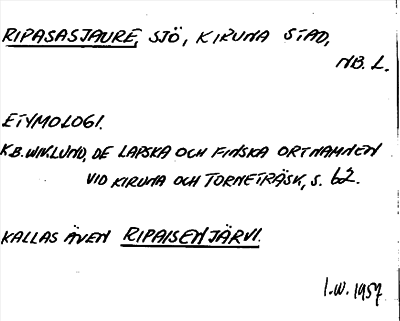 RIPASASJAURE, SJÖ, KIRUNA STAD,
NB. L.
ETYMOLOGI.
K.B. WIKLUND, DE LAPSKA OCH FINSKA ORTNAMNEN
VID KIRUNA OCH TORNETRÄSK, S. 62.
KALLAS ÄVEN RIPAISENJÄRVI.
I.W. 1957